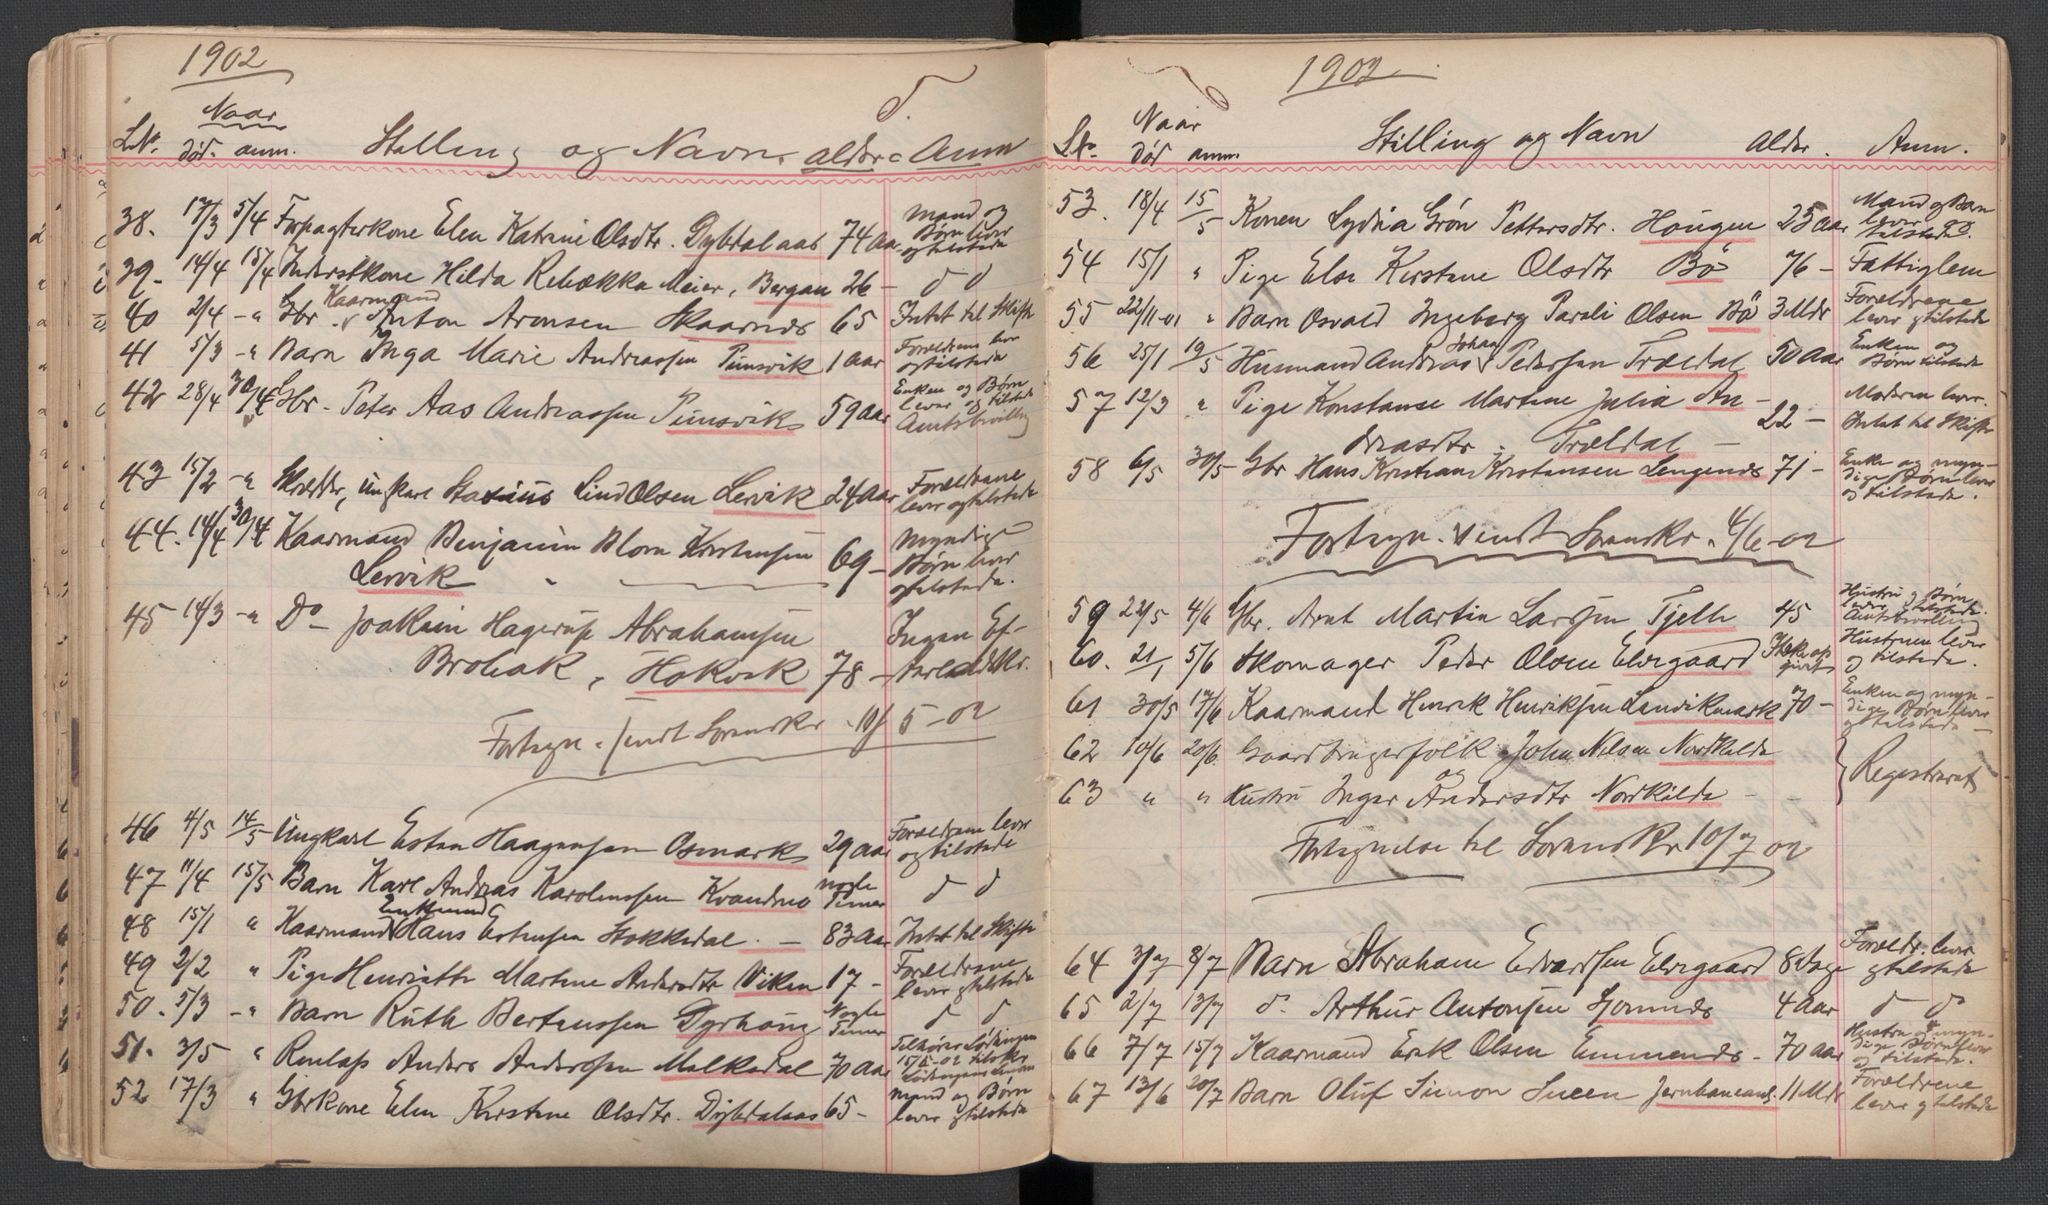 1902
Naar
LNr. død. anm. Stilling og Navn. alder. Anm
38. 17/3 5/4 Forpagterkone Elen Katrine Olsdtr. Dybdalaas 74 aar Mand og Børn lever og tilstede
39. 14/4 15/4 Inderstkone Hilda Rebækka Meier, Bergan 26 - d d
40 2/4 -" Gbr. Kaarmand Anton Aronsen Skaarnes 65 Intet til Skifte
41 5/3 -" Barn Inga Marie Andreassen Punsvik 1 aar Forældrene lever og tilstede
42 28/4 30/4 Gbr. Peter Aas Andreassen Punsvik 59 aar Enken og Børn lever og tilstede Amtsbevilling
43 15/2 -" Skrædder, ungkarl Stasius Lind Olsen Lervik 24 aar Forældrene lever og tilstede
44. 14/4 30/4 Kaarmand Benjamin Blom Kristensen 69 - Myndige Børn lever og tilstede.
Lervik "
45 14/3 -" Do Joakim Hagerup Abrahamsen
Brobak, Hokvik 78 - Ingen Ef-
Fortegn. sendt Sorenskr. 10/5-02
46 4/5 14/5 Ungkarl Esten Haagensen Osmark 29 aar Forældrene lever og tilstede
47 11/4 15/5 Barn Karl Andreas Karolinussen Kvandno nogle Timer d d
48 15/1 " Kaarmand Enkemand Hans Estensen Stokkedal. - 83 aar Intet til Skifte
49 2/2 " Pige Henriette Martine Andersdtr Viken 17 - Forældrene lever og tilstede
50. 5/3 -" Barn Ruth Bertenssen Dyrhaug Nogle Timer d d
51. 3/5 " Renlap Anders Anderssen Melkedal 70 aar Tilhører Lødingen
52 17/3 " Gbrkone Elen Kirstine Olsdtr. Dybdalsaas 65 - Mand og Børn lever og tilstede
1902
Naar
LNr død anm. Stilling og Navn Alder. Anm.
53. 18/4 15/5 Konen Lydia Grøn Pettersdtr. Hougen 25 aar Mand og Barn lever tilstede.
54 15/1 " Pige Else Kirstine Olsdtr Bø 76 - Fattiglem
55 22/11-01 " Barn Osvald Ingeberg Pareli Olsen Bø 3 Mdr Forældrene lever og tilstede
56 25/1 19/5 Husmand Andreas Johan Pedersen Trældal 50 aar Enken og Børn tilstede
57 12/3 " Pige Konstanse Martine Julia An- 22 - Moderen lever. Intet til Skifte
dreasdtr. Trældal -
58 6/5 30/5 Gbr Hans Kristian Kristensen Lengenes 71 - Enke og myn- dige Børn lever og tilstede.
Fortegn. sendt Sorenskr. 4/6-02
59 22/5 4/6 Gbr. Arnt Martin Larsen Fjelle 45 Hustru og Børn lever og tilstede. Amtsbevilling
60. 21/1 5/6 Skomager Peder Olsen Elvegaard Ikke op givet Hustruen lever og tilstede.
61 30/5 17/6 Kaarmand Henrik Henriksen Lenvikmark 70 - Enken og myn- dige Børn lever og tilstede -
62 10/6 20/6. Gaardbrugerfolk John Nilsen Nordkilde
og } Registreret
63 " " Hustru Inger Andersdtr Nordkilde - -
Fortegnelse til Sorenskr 10/7 02
64 3/7 8/7 Barn Abraham Edvardsen Elvegaard 8 dage Forældr. lever og tilstede
65 2/7 13/7 d. Arthur Antonsen Sjomnes 4 aar d d
66 7/7 15/7 Kaarmand Erik Olsen Emmenes - 70 aar Hustru og myn- dige Børn lever og tilstede.
67 13/6 20/7 Barn Oluf Simon Sneen Jernbaneanl. 11 Mdr Forældrene lever og tilstede